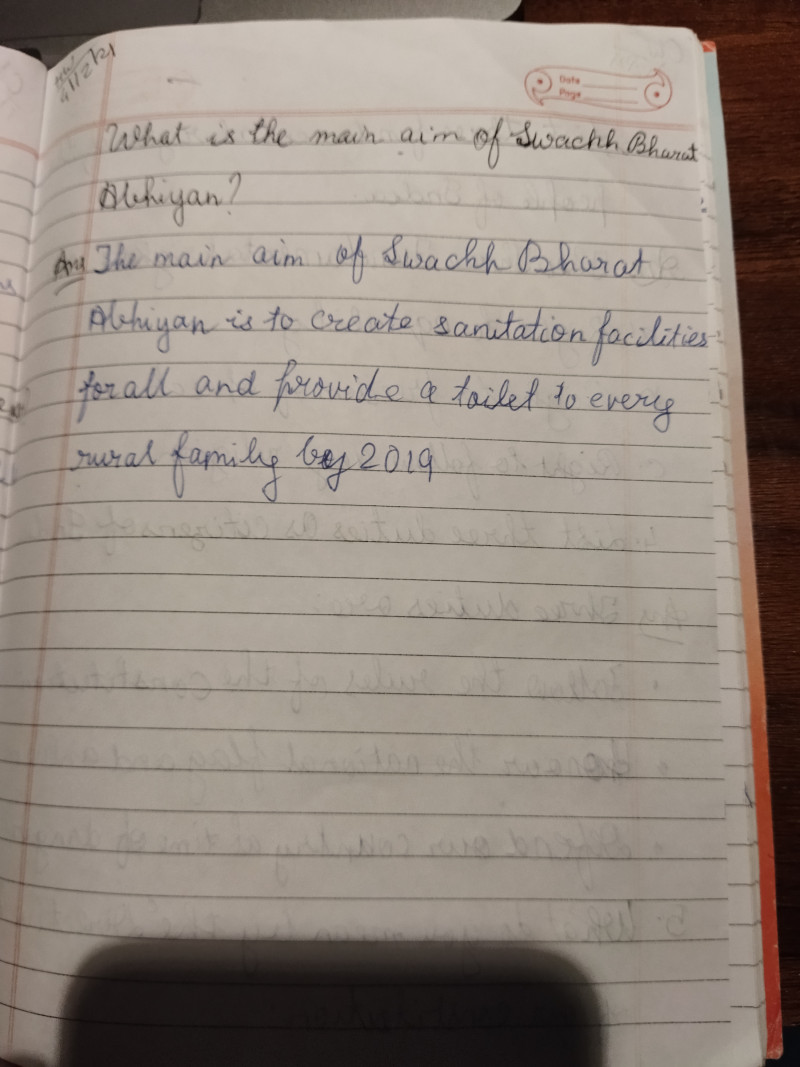 HW
4/2/21
Date
Page
What is the main aim of Swachh Bharat
Abhiyan?
Ans The main aim of Swachh Bharat
Abhiyan is to create sanitation facilities
for all and provide a toilet to every
rural family by 2019